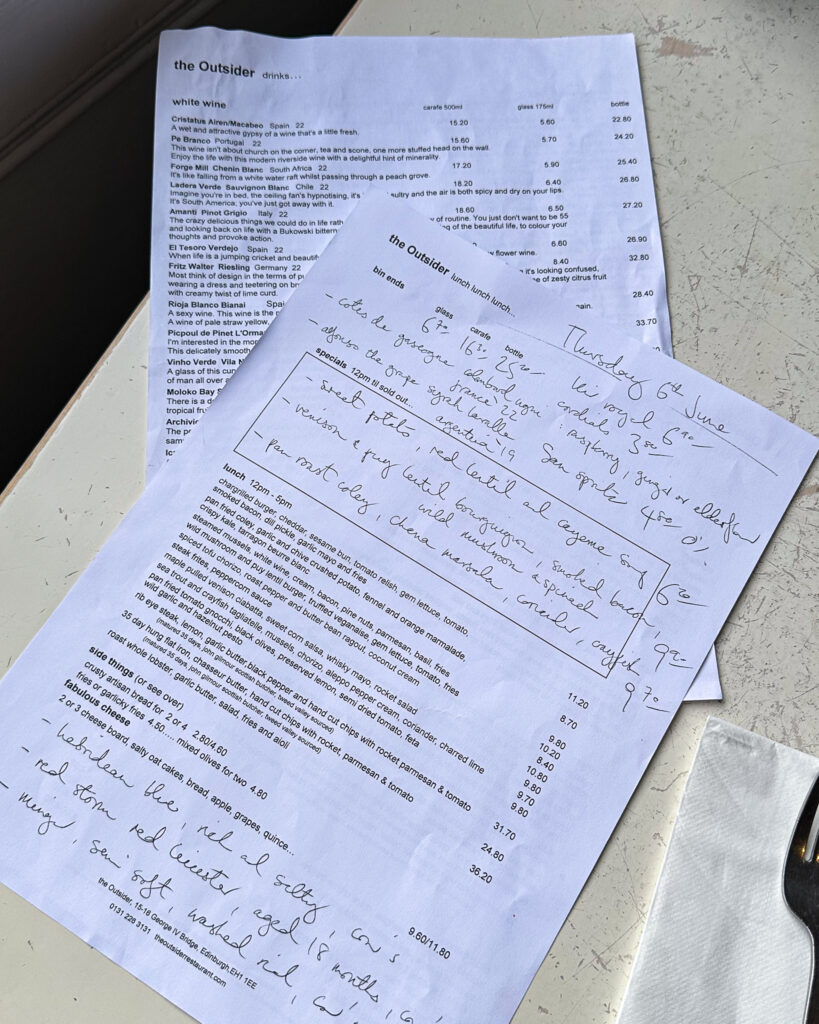 the Outsider drinks...
white wine carafe 500ml glass 175ml bottle
Cristatus Airen/Macabeo Spain 22 15.20 5.60 22.80
A wet and attractive gypsy of a wine that's a little fresh.
Pe Branco Portugal 22 15.60 5.70 24.20
This wine isn't about church on the corner, tea and scone, one more stuffed head on the wall.
Enjoy the life with this modern riverside wine with a delightful hint of minerality.
Forge Mill Chenin Blanc South Africa 22 17.20 5.90 25.40
It's like falling from a white water raft whilst passing through a peach grove.
Ladera Verde Sauvignon Blanc Chile 22 18.20 6.40 26.80
Imagine you're in bed, the ceiling fan's hypnotising, it's sultry and the air is both spicy and dry on your lips.
It's South America, you've just got away with it.
Amanti Pinot Grigio Italy 22 18.60 6.50 27.20
The crazy delicious things we could do in life rath of routine. You just don't want to be 55
and looking back on life with a Bukowski bittern ng of the beautiful life, to colour your
thoughts and provoke action.
El Tesoro Verdejo Spain 22 6.60 26.90
When life is a jumping cricket and beautif flower wine.
Fritz Walter Riesling Germany 22 8.40 32.80
Most think of design in the terms of pu it's looking confused,
wearing a dress and teetering on br e of zesty citrus fruit
with creamy twist of lime curd.
Rioja Blanco Bianai Spai 28.40
A sexy wine. This wine is the p pain.
A wine of pale straw yellow,
Picpoul de Pinet L'Orma 33.70
I'm interested in the mo
This delicately smooth
Vinho Verde Vila N
A glass of this cup
of man all over
Moloko Bay S
There is a d
tropical fru
Archivi
The pe
sam
the Outsider lunch lunch lunch...
Thursday 6th June
bin ends glass carafe bottle
6.70 16.30 25.00
- cotes de gascogne colombard ugni
france '22
- alfonso the grape syrah lavalle
argentina '19
kir royal 6.90
cordials : raspberry, ginger or elderflower
3.50
San spritz 4.80 0%
specials 12pm til sold out...
- sweet potato, red lentil and cayenne soup 6.20
- venison & puy lentil bourguignon, smoked bacon,
wild mushroom & spinach 9.90
- pan roast coley, chana masala, coriander, 9.70
lunch 12pm - 5pm
chargrilled burger, cheddar, sesame bun, tomato relish, gem lettuce, tomato,
smoked bacon, dill pickle, garlic mayo and fries 11.20
pan fried coley, garlic and chive crushed potato, fennel and orange marmalade,
crispy kale, tarragon beurre blanc 8.70
steamed mussels, white wine, cream, bacon, pine nuts, parmesan, basil, fries 9.80
wild mushroom and puy lentil burger, truffled veganaise, gem lettuce, tomato, fries 10.20
spiced tofu chorizo, roast pepper and butter bean ragout, coconut cream 8.40
steak frites, peppercorn sauce 10.80
maple pulled venison ciabatta, sweet corn salsa, whisky mayo, rocket salad 9.80
sea trout and crayfish tagliatelle, mussels, chorizo, aleppo pepper cream, coriander, charred lime 9.70
pan fried tomato gnocchi, black olives, preserved lemon, semi dried tomato, feta
wild garlic and hazelnut pesto 9.80
rib eye steak, lemon, garlic butter, black pepper and hand cut chips with rocket parmesan & tomato 31.70
(matured 35 days, john gilmour scottish butcher, tweed valley sourced)
35 day hung flat iron, chasseur butter, hand cut chips with rocket, parmesan & tomato 24.80
(matured 35 days, john gilmour scottish butcher, tweed valley sourced)
roast whole lobster, garlic butter, salad, fries and aioli 36.20
side things (or see over)
crusty artisan bread for 2 or 4 2.80/4.60
fries or garlicky fries 4.50..... mixed olives for two 4.80
fabulous cheese
2 or 3 cheese board, salty oat cakes, bread, apple, grapes, quince... 9.60/11.80
- hebridean blue, rich and salty, cow's
- red storm red leicester, aged 18 months,
- semi soft, washed rind,
the Outsider, 15-16 George IV Bridge, Edinburgh.EH1 1EE
0131 226 3131 theoutsiderrestaurant.com